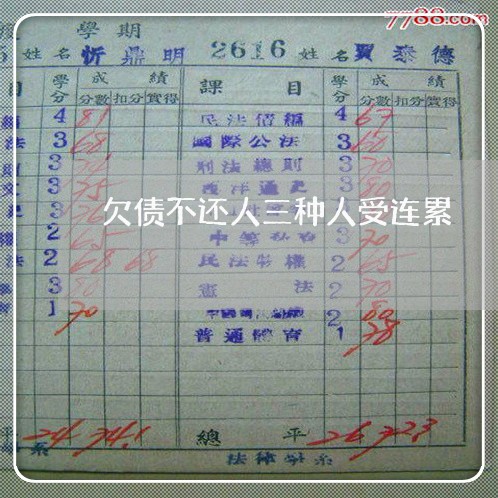 7788.com
學期
5 姓名 忻鼎明 2616 姓名 賈泰德
目 學分 成績 課目 學分 成績
分數 扣分 實得 分數 扣分 實得
4 81 民法債編 4 67
法 3 68 國際公法 3 60
3 刑法總則 3 70
3 75 西洋通史 3 80
3
2 65 3 70
法 2 68 68 民法物權 2 65
3 80 憲法 2 70
1 70 2 80
普通體育 1 78
欠债不还人三种人受连累
平 24 74.1 總平 26 72.3
系 法律學系